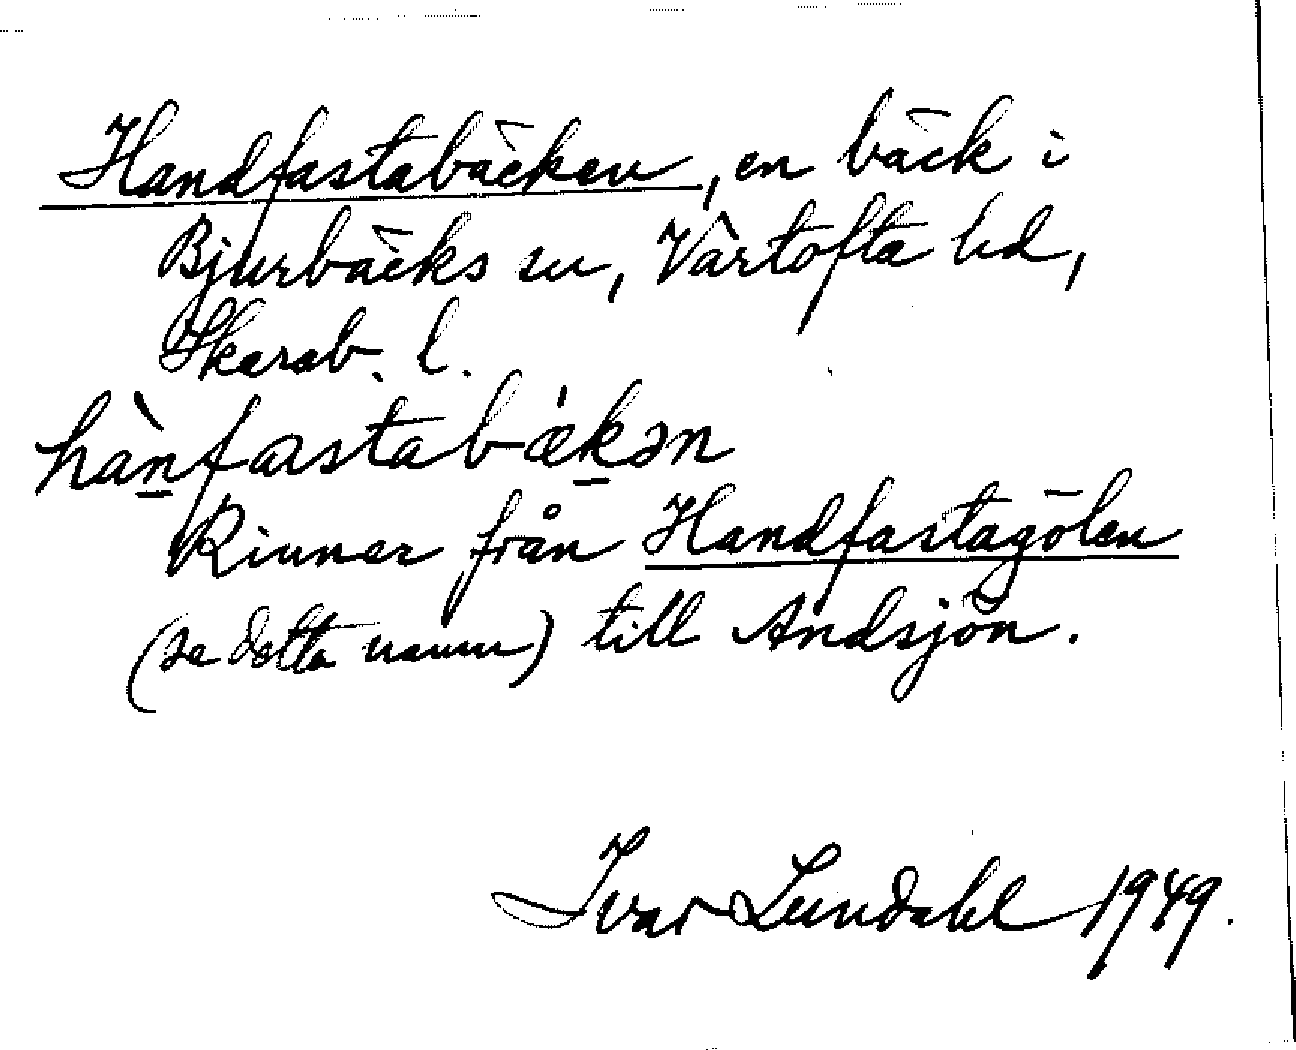 Handfastabäcken, en bäck i
Bjurbäcks sn, Vartofta hd,
Skarab. l.
hànfastabǽkən
Rinner från Handfastagölen
(se detta namn) till Andsjön.
Ivar Lundahl 1949.